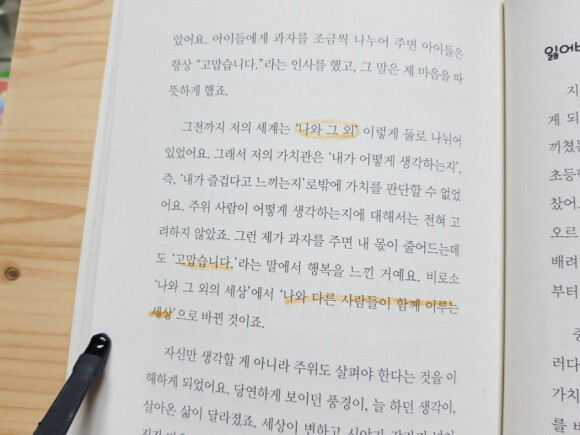 았어요. 아이들에게 과자를 조금씩 나누어 주면 아이들은
항상 “고맙습니다.”라는 인사를 했고, 그 말은 제 마음을 따
뜻하게 했죠.
그전까지 저의 세계는 ‘나와 그 외’ 이렇게 둘로 나뉘어
있었어요. 그래서 저의 가치관은 ‘내가 어떻게 생각하는지’,
즉, ‘내가 즐겁다고 느끼는지’로밖에 가치를 판단할 수 없었
어요. 주위 사람이 어떻게 생각하는지에 대해서는 전혀 고
려하지 않았죠. 그런 제가 과자를 주면 내 몫이 줄어드는데
도 ‘고맙습니다.’라는 말에서 행복을 느낀 거예요. 비로소
‘나와 그 외의 세상’에서 ‘나와 다른 사람들이 함께 이루는
세상’으로 바뀐 것이죠.
자신만 생각할 게 아니라 주위도 살펴야 한다는 것을 이
해하게 되었어요. 당연하게 보이던 풍경이, 늘 하던 생각이,
살아온 삶이 달라졌죠. 세상이 변하고
잃어버
지
게 되
끼쳤는
초등학
찼어.
오르
배려
부터
중
러다
가치
를 바